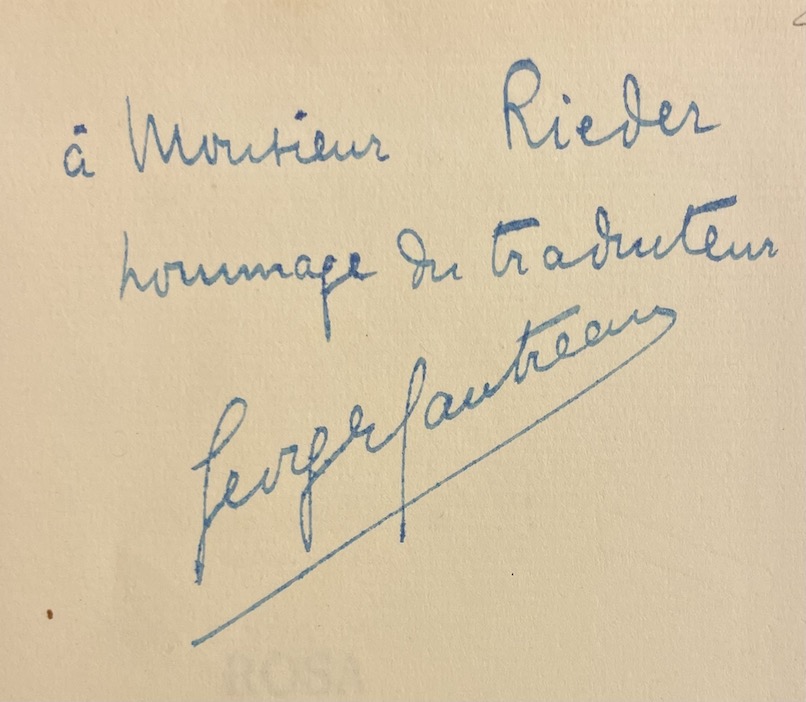 à Monsieur Rieder
hommage du traducteur
Georges Gautreau
ROSA